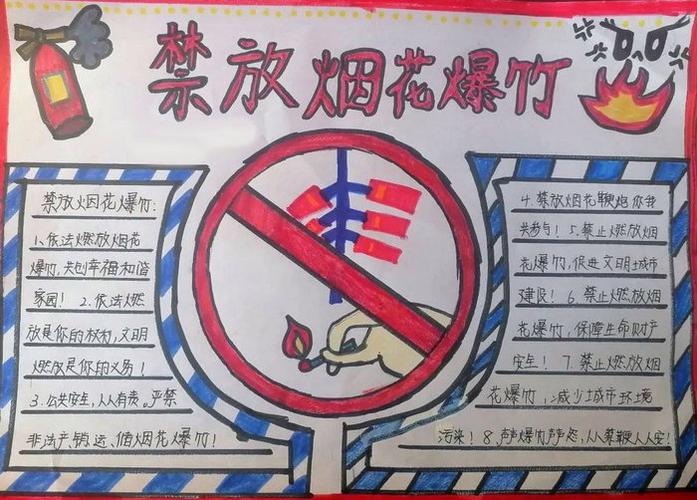 禁放烟花爆竹
禁放火因花爆竹:
1.依法燃放烟花
爆竹,共创幸福和谐
家园! 2.依法燃
放是你的权利,文明
燃放是你的义务!
3.公共安全,人人有责,严禁
非法产、销、运、储烟花爆竹!
4.禁放烟花鞭炮你我
共参与! 5.禁止燃放烟
花爆竹,促进文明城市
建设! 6.禁止燃放烟
花爆竹,保障生命财产
安全! 7.禁止燃放烟
花爆竹,减少城市环境
污染! 8.声声爆竹声声怨,人人禁鞭人人安!